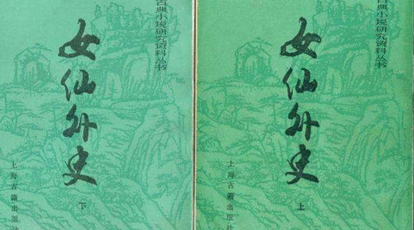 古典小说研究资料丛书
女仙外史
下
上海古籍出版社
古典小说研究资料丛书
女仙外史
上
上海古籍出版社